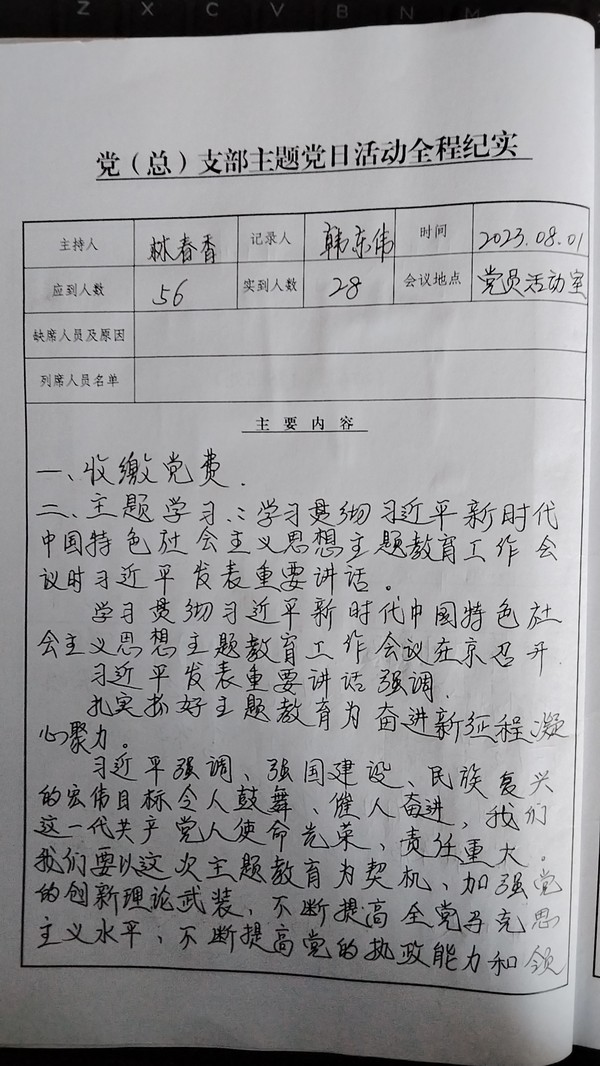 Z X C V B N M
党（总）支部主题党日活动全程纪实
主持人 林春香 记录人 韩东伟 时间 2023.08.01
应到人数 56 实到人数 28 会议地点 党员活动室
缺席人员及原因
列席人员名单
主要内容
一、收缴党费.
二、主题学习：学习贯彻习近平新时代
中国特色社会主义思想主题教育工作会
议时习近平发表重要讲话。
学习贯彻习近平新时代中国特色社
会主义思想主题教育工作会议在京召开
习近平发表重要讲话强调.
扎实抓好主题教育为奋进新征程凝
心聚力。
习近平强调、强国建设、民族复兴
的宏伟目标令人鼓舞、催人奋进，我们
这一代共产党人使命光荣、责任重大。
我们要以这次主题教育为契机、加强党
的创新理论武装、不断提高全党马克思
主义水平、不断提高党的执政能力和领